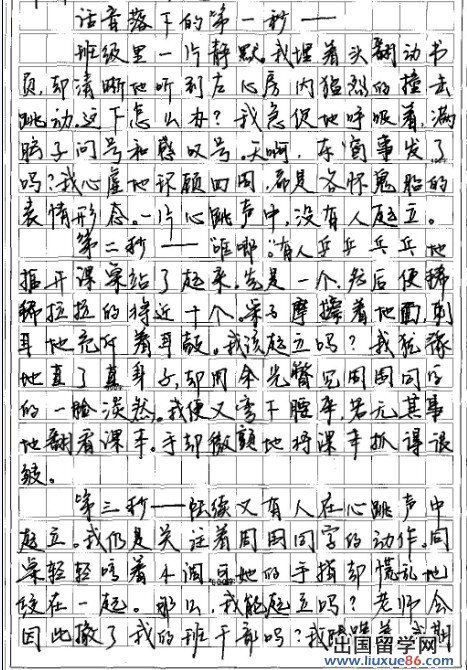 话音落下的第一秒——
班级里一片静默。我埋着头翻动书
页,却清晰地听到左心房内猛烈的撞击
跳动。这下怎么办?我急促地呼吸着,满
脑子问号和感叹号。天啊,东窗事发了
吗?我心虚地环顾四周,都是各怀鬼胎的
表情形态。一片心跳声中,没有人起立。
第二秒——"哐啷。"有人乒乒乓乓地
挪开课桌站了起来。先是一个,然后便稀
稀拉拉的将近十个。桌子摩擦着地面,刺
耳地充斥着耳鼓。我该起立吗?我犹豫
地直了直身子,却用余光瞥见周围同学
的一脸淡然。我便又弯下腰来,若无其事
地翻看课本。手却微颤地将课本抓得很
皱。
第三秒——陆续又有人在心跳声中
起立。我仍是关注着周围同学的动作。同
桌轻轻哼着小调可她的手指却慌乱地
绞在一起。那么,我能起立吗?老师会
因此撤了我的班干部吗?我
出国留学网
www.liuxue86.com